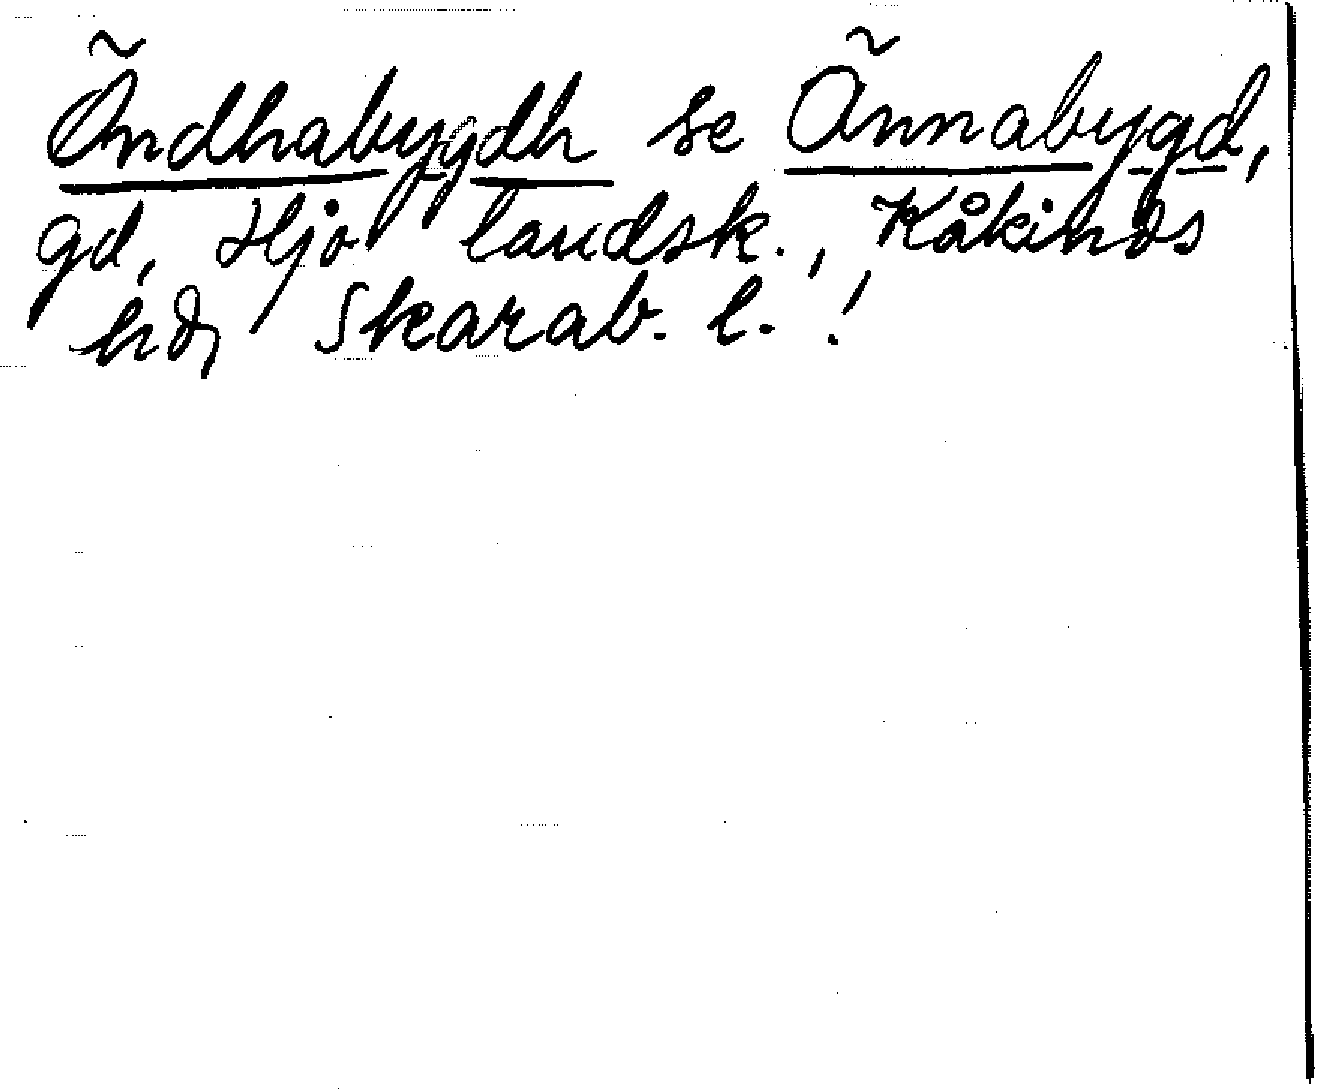 Ändhabygdh se Ännabygd,
gd, Hjo landsk., Kåkinds
hd, Skarab. l. !